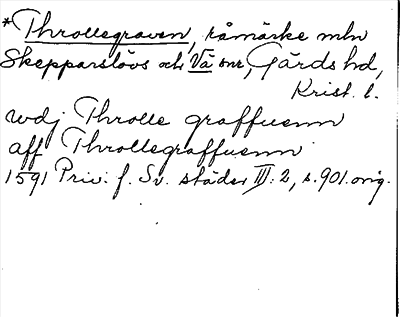 *Throllegraven, råmärke mln
Skepparslövs och Vä snr, Gärds hd,
Krist. l.
wdj Throlle graffuenn
aff Throllegraffuenn
1591 Priv. f. Sv. städer III:2, s. 901. orig.